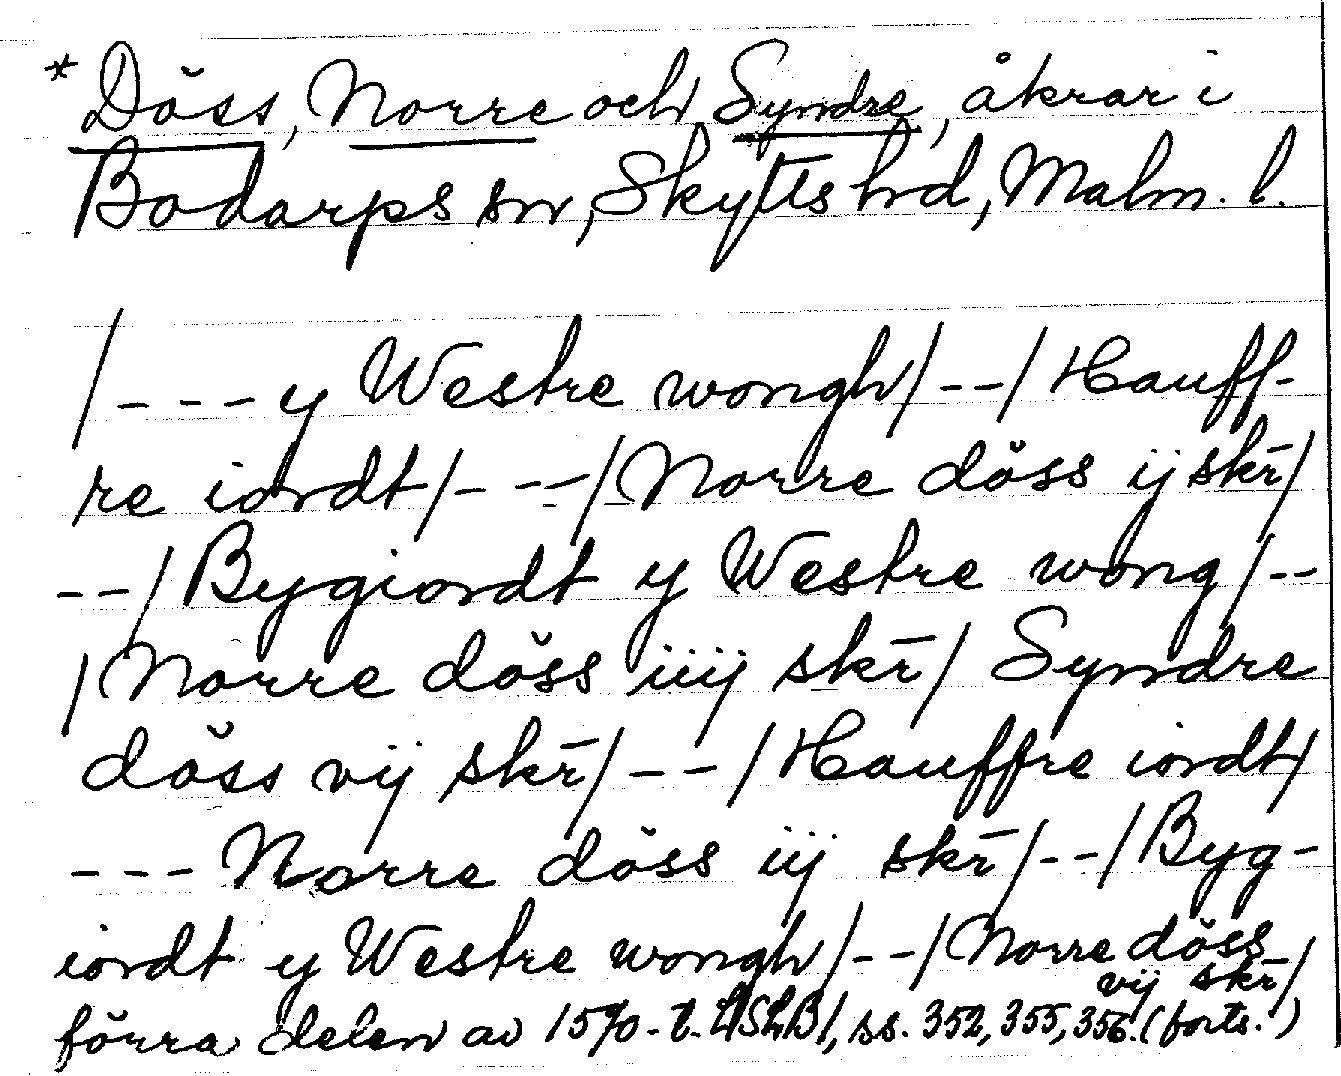 * Döss, Norre och Syndre, åkrar i
Bodarps sn, Skytts hd, Malm. l.
/ - - - y Westre wongh / - - / Hauff-
re iordt / - - - / Norre döss ij skr̄ /
- - / Bygiordt y Westre wong / - -
/ Norre döss iiij skr̄ / Syndre
döss vij skr̄ / - - / Hauffre iordt /
- - - Norre döss iij skr̄ / - - / Byg-
iordt y Westre wongh / - - / Norre döss
vij skr̄ /
förra delen av 1570-t. LSLB 1, ss. 352, 355, 356. (forts.)